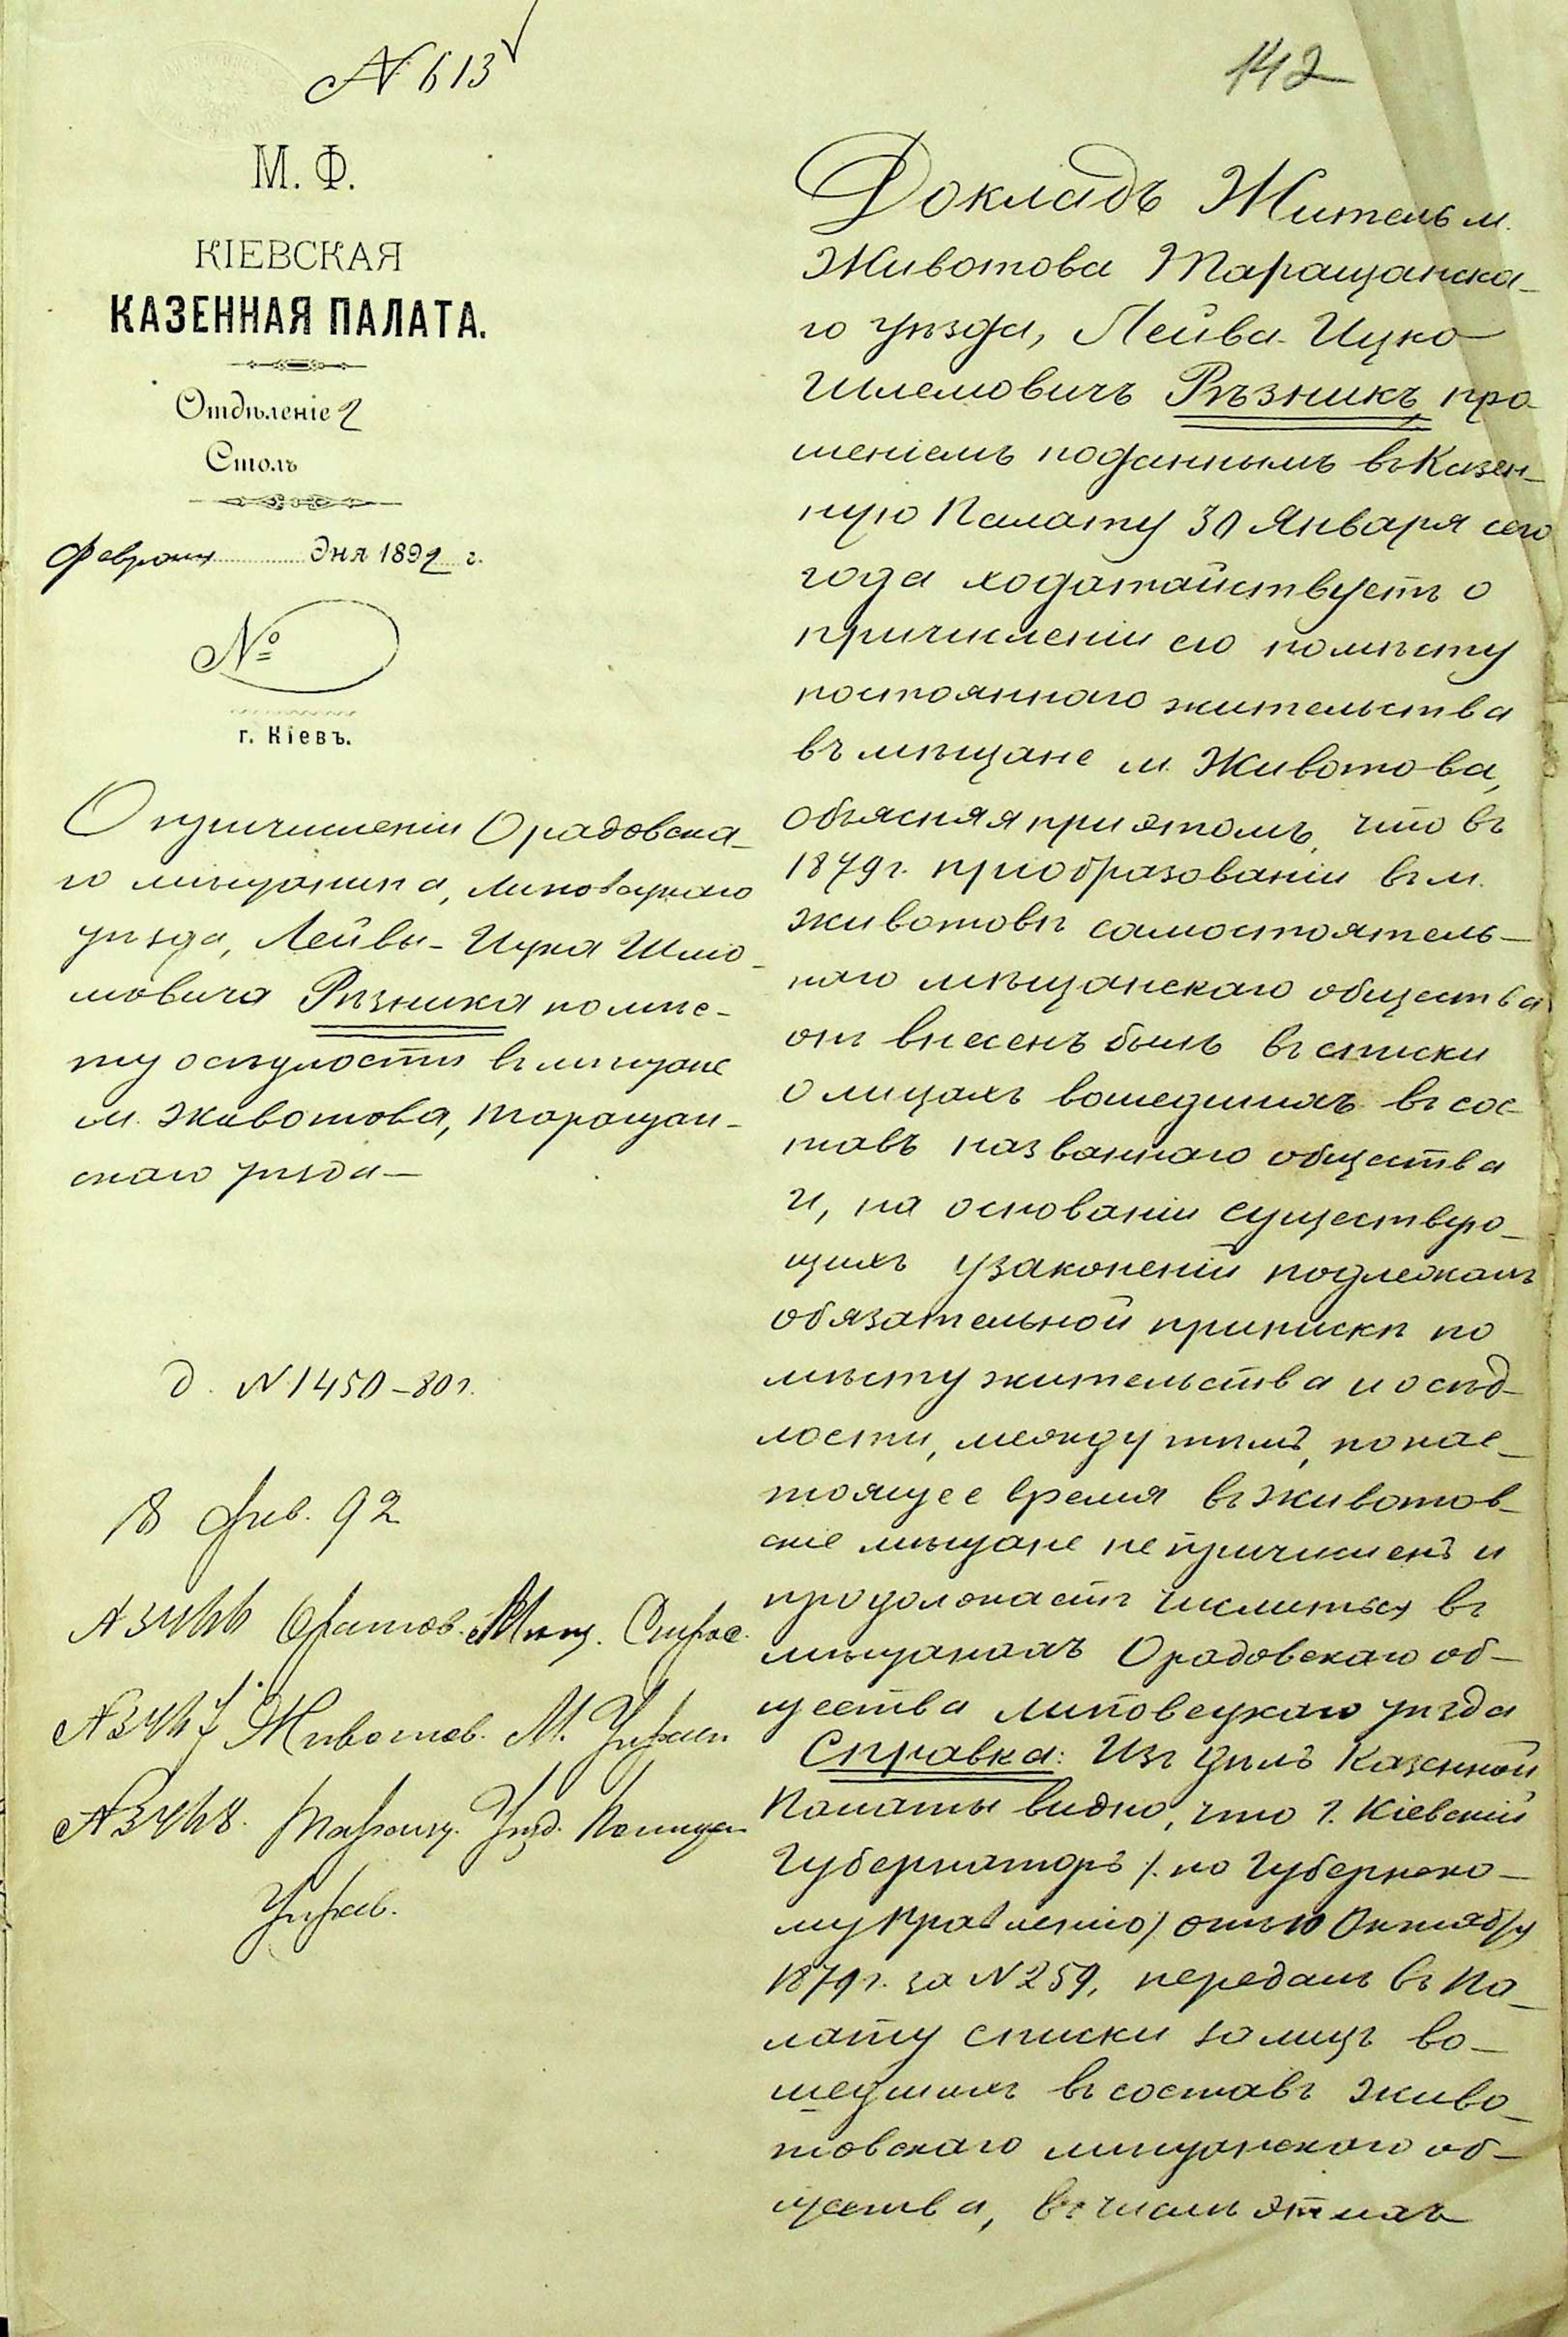 N 613
142
М. Ф.
КІЕВСКАЯ
КАЗЕННАЯ ПАЛАТА.
Отдѣленіе 2
Столъ
Февраля дня 1892 г.
№
г. Кіевъ.
О причисленіи Орадовска-
го мѣщанина, Липовецкаго
уѣзда, Лейвы-Ицка Шмо-
мовича Рѣзника по мѣс-
ту осѣдлости въ мѣщане
м. Животова, Таращан-
скаго уѣзда —
д. N 1450 – 80 г.
18 фев. 92
N 3466 Оратов. Мѣщ. Старос.
N 3467 Животов. М. Управ.
N 3468. Таращ. Уѣзд. Полицей
Управ.
Докладъ Житель м.
Животова Таращанска-
го уѣзда, Лейва-Ицко
Шлемовичъ Рѣзникъ, про-
шеніемъ поданнымъ въ Казен-
ную Палату 30 Января сего
года ходатайствуетъ о
причисленіи его по мѣсту
постояннаго жительства
въ мѣщане м. Животова,
объясняя при этомъ, что въ
1879 г. при образованіи въ м.
Животовѣ самостоятель-
наго мѣщанскаго общества
онъ внесенъ былъ въ списки
о лицахъ вошедшихъ въ сос-
тавъ названнаго общества
и, на основаніи существую-
щихъ узаконеній подлежалъ
обязательной припискѣ по
мѣсту жительства и осѣд-
лости, между тѣмъ, по нас-
тоящее время въ Животов-
скіе мѣщане не причисленъ и
продолжаетъ числиться въ
мѣщанахъ Орадовскаго об-
щества Липовецкаго уѣзда
Справка: Изъ дѣлъ Казенной
Палаты видно, что г. Кіевскій
Губернаторъ /по Губернско-
му Правленію/ отъ 10 Октября
1879 г. за N 259, передалъ въ Па-
лату списки о лицъ во-
шедшихъ въ составъ Живо-
товскаго мѣщанскаго об-
щества, въ числѣ этихъ